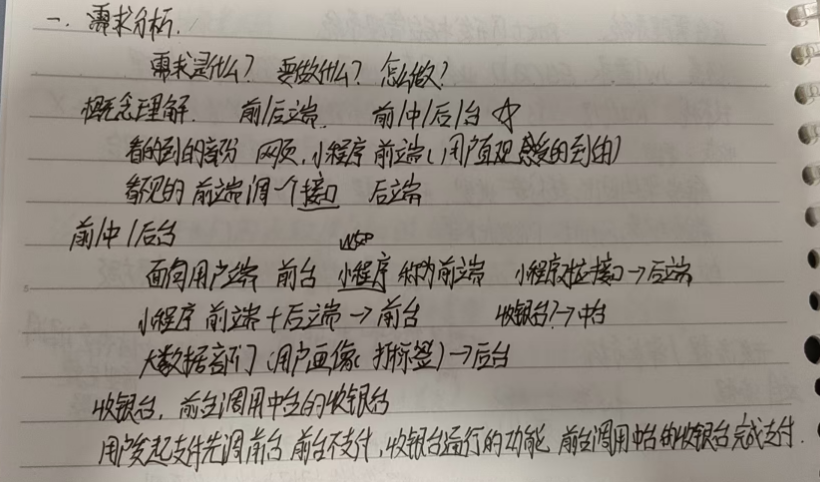 一. 需求分析.
需求是什么? 要做什么? 怎么做?
概念理解. 前/后端. 前/中/后/台 ☆
看的到的部分 网页, 小程序 前端(用户直观感受的到的)
看见的 前端调一个接口 后端
前/中/后台
面向用户端 前台 小程序 称为前端 小程序对应接口→后端
小程序 前端+后端→前台 收银台→中台
大数据部门(用户画像(打标签)→后台
收银台, 前台调用中台的收银台
用户发起支付先调前台 前台不支付, 收银台运行的功能 前台调用中台的收银台完成支付.